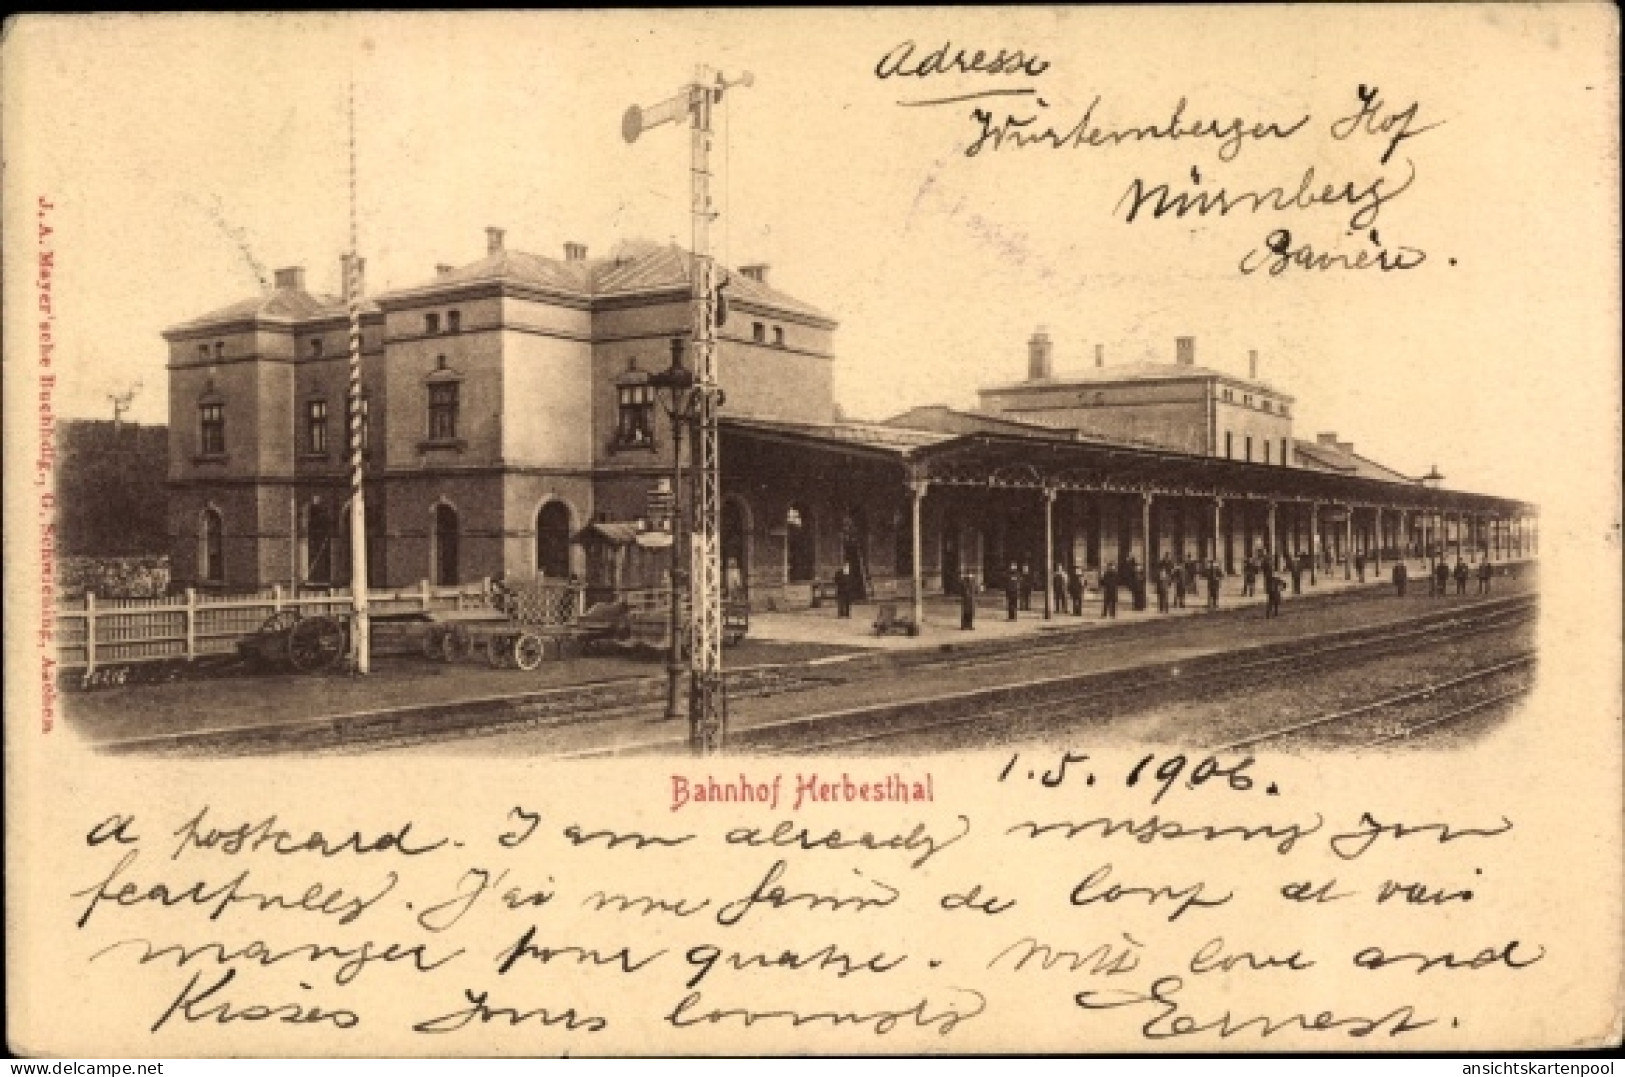 Adresse
Würtemberger Hof
Nürnberg
Bavière.
J. A. Mayer'sche Buchhdlg., G. Schwiening, Aachen
Bahnhof Herbesthal
1.5.1906.
a postcard. I am already missing you
fearfully. J'ai une faim de loup et vais
manger pour quatre. With love and
Kisses Yours lovingly Ernest.
www.delcampe.net
ansichtskartenpool